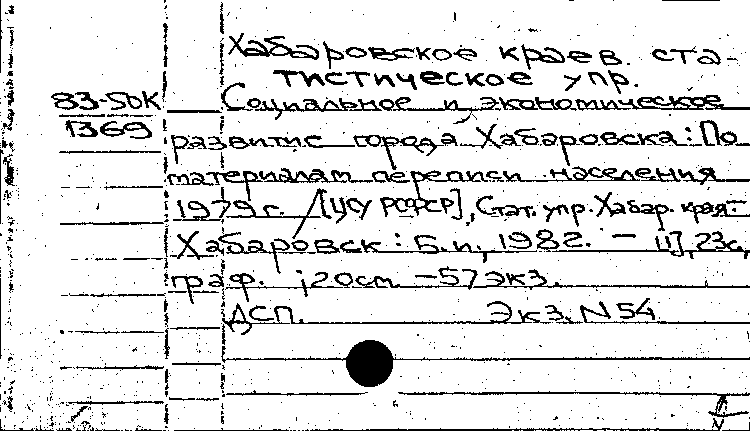 Хабаровское краев. ста-
тистическое упр.
83-50К Социальное и экономическое
1369 развитие города Хабаровска: По
материалам переписи населения
1979 г. / [ЦСУ РСФСР], Стат. упр. Хабар. края.-
Хабаровск: Б.и., 1982. - II, 23с,
граф. ; 20см - 57экз.
ДСП. Экз. N 54